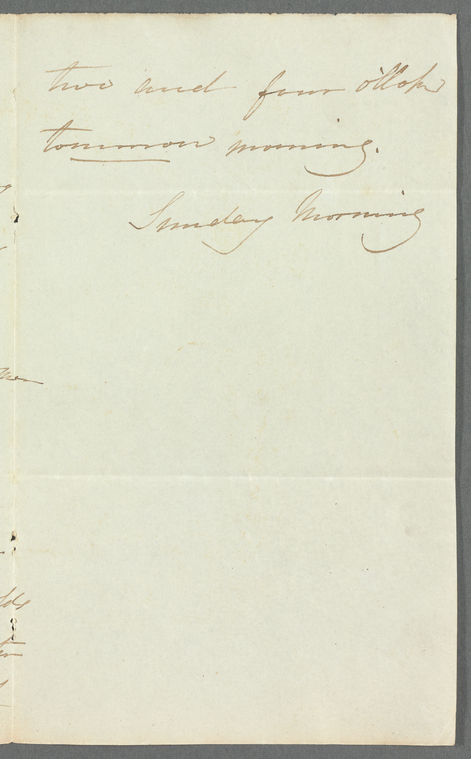 two and four o'clock
tomorrow morning.
Sunday Morning